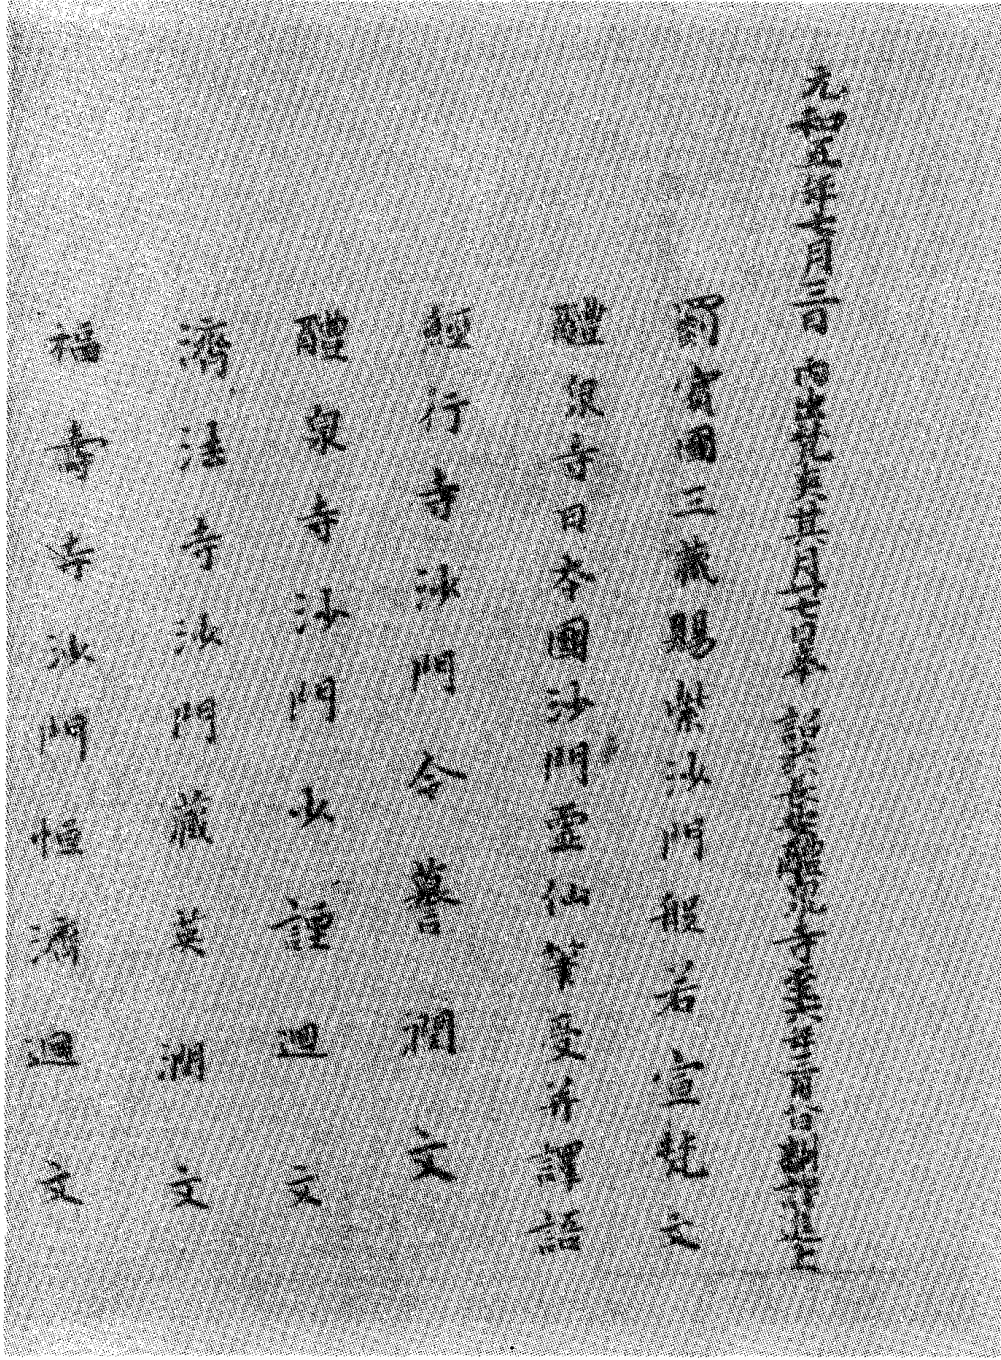 元和五年七月三日 内出梵夾其月廿七日奉 詔於長安醴泉寺至六年三月八日翻譯進上
罽賓國三藏賜紫沙門般若宣梵文
醴泉寺日本國沙門霊仙筆受并譯語
經行寺沙門令謩潤文
醴泉寺沙門少諲迴文
濟法寺沙門藏英潤文
福壽寺沙門恒濟迴文